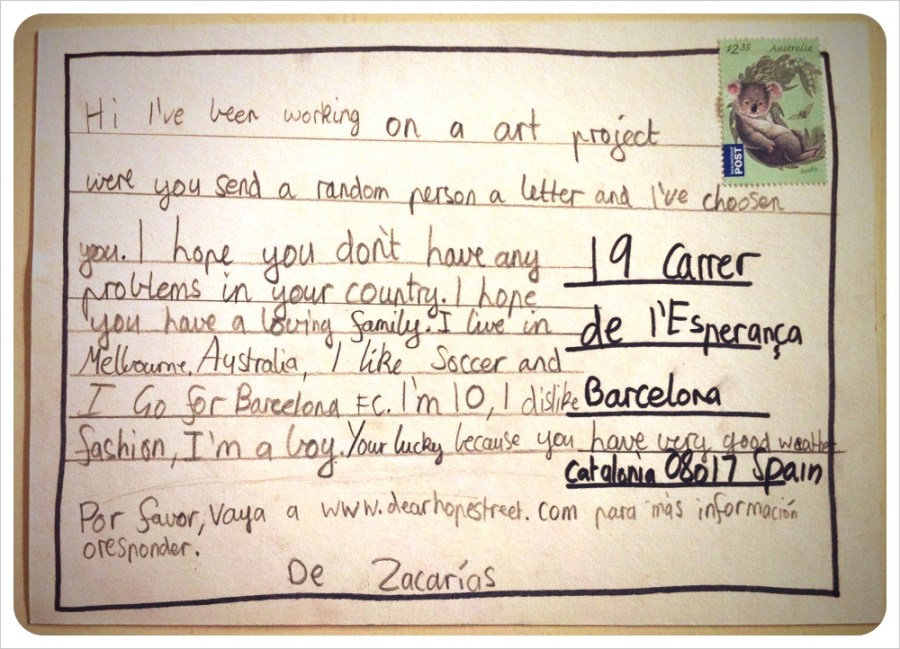 $2.35 Australia
International POST
Koala
Hi I've been working on a art project
were you send a random person a letter and I've choosen
you. I hope you don't have any
problems in your country. I hope
you have a loving family. I live in
Melbourne, Australia, I like Soccer and
I Go for Barcelona FC. I'm 10, I dislike
fashion, I'm a boy. Your lucky because you have very good weather
19 Carrer
de l'Esperança
Barcelona
Catalonia 08017 Spain
Por favor, Vaya a www.dearhopestreet.com para más información
oresponder.
De Zacarías